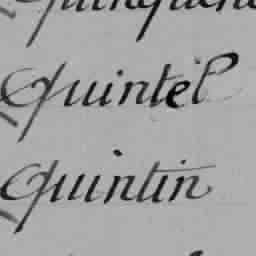 Quintel
Quintin